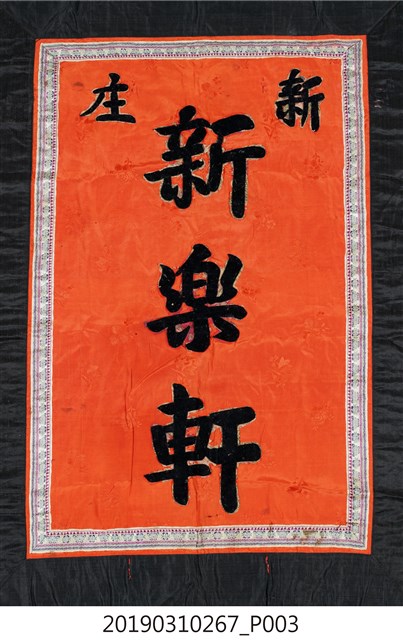 新庄
新樂軒
20190310267_P003